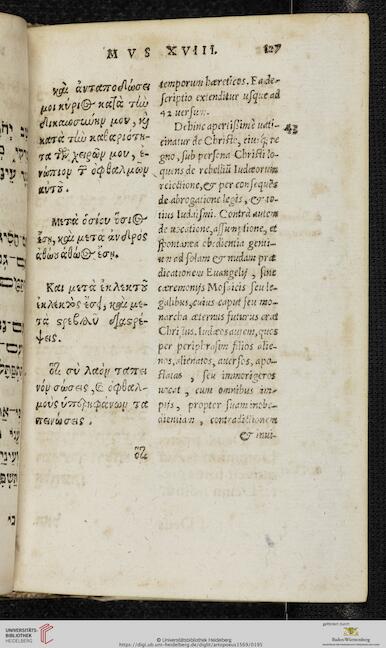 MVS XVIII. 127
καὶ ἀνταποδώσει
μοι κύριος κατὰ τὴν
δικαιοσύνην μου, καὶ
κατὰ τὴν καθαριότη-
τα τῶν χειρῶν μου, ἐ-
νώπιον τῶν ὀφθαλμῶν
αὐτοῦ.
Μετὰ ὁσίου ὅσιος
ἔσῃ, καὶ μετὰ ἀνδρὸς
ἀθώου ἀθῶος ἔσῃ,
Και μετὰ ἐκλεκτοῦ
ἐκλεκτὸς ἔσῃ, καὶ με-
τὰ στρεβλοῦ διαστρέ-
ψεις.
ὅτι σὺ λαὸν ταπει
νὸν σώσεις, καὶ ὀφθαλ-
μοὺς ὑπερηφάνων τα
πεινώσεις.
ὅτι
temporum hæreticos. Eade-
scriptio extenditur usque ad
42 versum.
Dehinc apertissimè vati- 43
cinatur de Christo, eiusq́; re
gno, sub persona Christi lo-
quens de rebelliū Iudæorum
reiectione, & per consequēs
de abrogatione legis, & to-
tius Iudaismi. Contrà autem
de vocatione, assumptione, et
spontanea obedientia genti-
um ad solam & nudam præ
dicationem Euangelij, sine
cæremonijs Mosaicis seu le-
galibus, cuius caput seu mo-
narcha æternus futurus erat
Christus. Iudæos autem, quos
per periphrasim filios alie-
nos, alienatos, auersos, apo-
statas, seu immorigeros
uocat, cum omnibus im-
pijs, propter suam inobe-
dientiam, contradictionem
& inui-
UNIVERSITÄTS-
BIBLIOTHEK
HEIDELBERG
© Universitätsbibliothek Heidelberg
https://digi.ub.uni-heidelberg.de/diglit/artopoeus1569/0195
gefördert durch
Baden-Württemberg